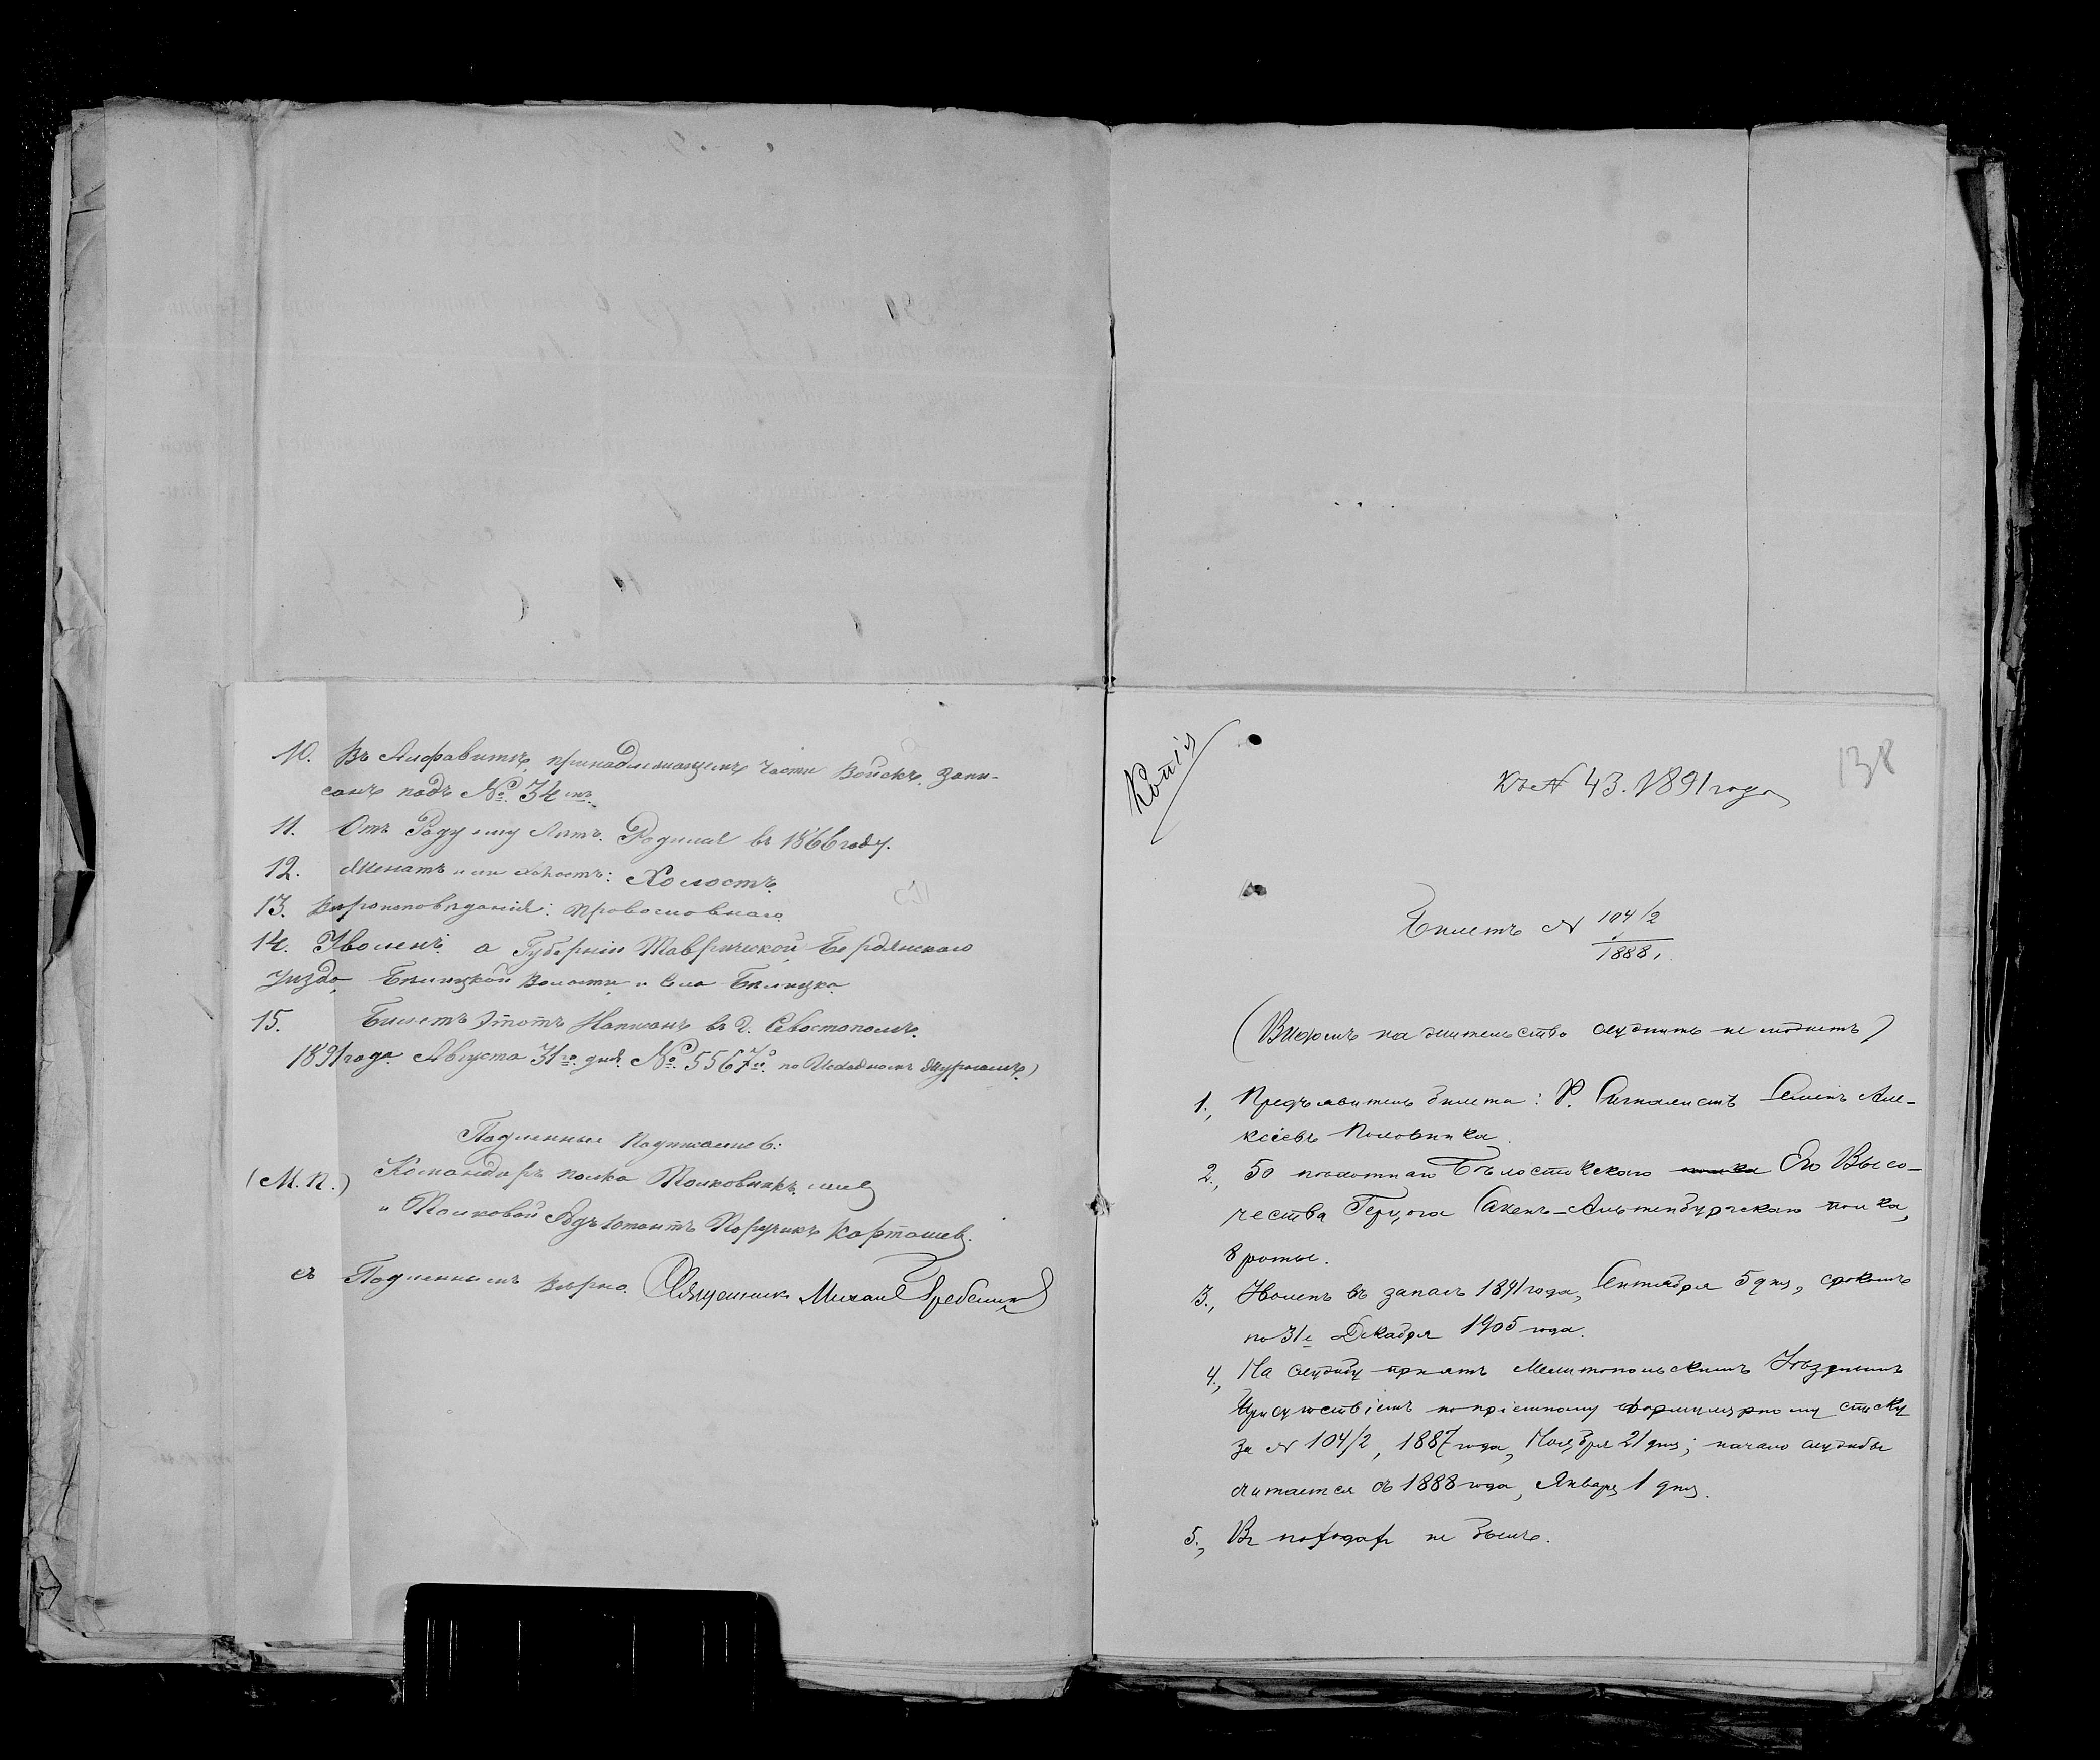 10. Въ Алфавитѣ, принадлежащемъ части Войскъ, запи-
санъ подъ № 34мъ.
11. Отъ Роду ему Лѣтъ. Родился въ 1866 году.
12. Женатъ или холостъ: Холостъ.
13. Вѣроисповѣданія: Православнаго
14. Уволенъ а Губерніи Таврической, Бердянскаго
уѣзда, Волости и Села
15. Билетъ этотъ Написанъ въ г. Севастополѣ.
1891 года Августа 31го дня № 5567й по Исходному Журналу)
Подлинные Подписалъ:
(М. П.) Командиръ полка Полковникъ
и Полковой Адъютантъ Поручикъ Карташев.
съ Подлиннымъ вѣрно. Священникъ Михаил
Копія
138
Къ № 43. 1891 года
Билетъ № 104/2
1888.
(Видомъ на жительство служить не можетъ)
1., Предъявитель билета: Р. Сигналистъ Семенъ Але-
ксѣевъ Половинка.
2., 50 пѣхотнаго Бѣлостокскаго полка Его Высо-
чества Герцога Саксенъ-Альтенбургскаго полка,
8 роты.
3., Уволенъ въ запасъ 1891 года, Сентября 5 дня, срокомъ
по 31е Декабря 1905 года.
4., На службу принятъ Мелитопольскимъ Уѣзднымъ
Присутствіемъ по пріемному формулярному списку
за № 104/2, 1887 года, Ноября 21 дня; начало службы
считается съ 1888 года, Января 1 дня.
5., Въ походахъ не былъ.